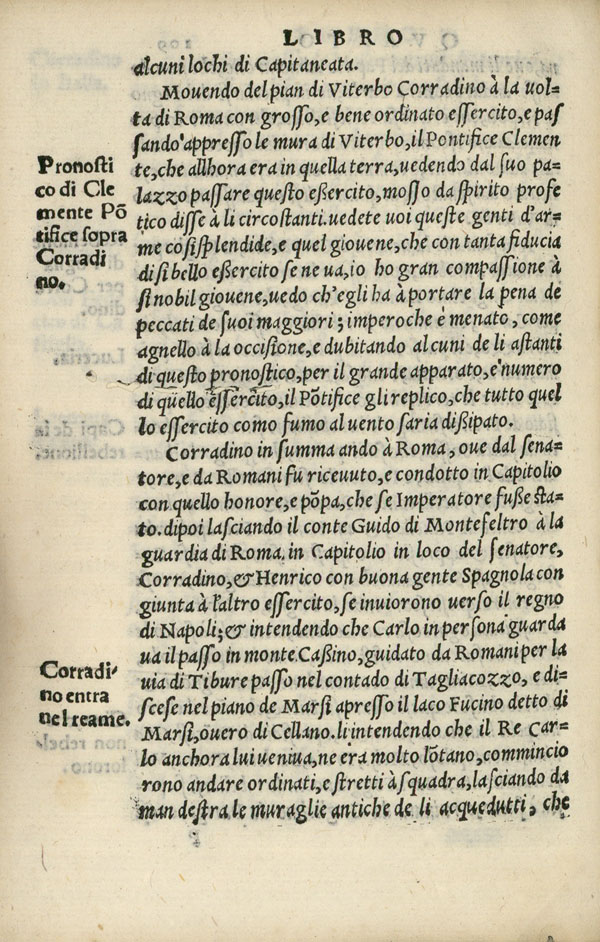 LIBRO
alcuni lochi di Capitaneata.
Mouendo del pian di Viterbo Corradino à la uol=
ta di Roma con grosso, e bene ordinato essercito, e pas
sando' appresso le mura di Viterbo, il Pontifice Clemen
te, che allhora era in quella terra, uedendo dal suo pa=
lazzo passare questo eßercito, mosso da spirito profe
tico disse à li circostanti. uedete uoi queste genti d'ar=
me cosi splendide, e quel giouene, che con tanta fiducia
di si bello eßercito se ne ua, io ho gran compassione à
si nobil giouene, uedo ch'egli ha à portare la pena de
peccati de suoi maggiori; imperoche è menato, come
agnello à la occisione, e dubitando alcuni de li astanti
di questo pronostico, per il grande apparato, e' numero
di quello essercito, il Põtifice gli replico, che tutto quel
lo essercito come fumo al uento saria dißipato.
Corradino in summa andò à Roma, oue dal sena=
tore, e da Romani fu riceuuto, e condotto in Capitolio
con quello honore, e põpa, che se Imperatore fuße sta=
to. dipoi lasciando il conte Guido di Montefeltro à la
guardia di Roma, in Capitolio in loco del senatore,
Corradino, & Henrico con buona gente Spagnola con
giunta à l'altro essercito, se inuiorono uerso il regno
di Napoli; & intendendo che Carlo in persona guarda
ua il passo in monte Caßino, guidato da Romani per la
uia di Tibure passo nel contado di Tagliacozzo, e di=
scese nel piano de Marsi apresso il laco Fucino detto di
Marsi, ouero di Cellano. li intendendo che il Re Car=
lo anchora lui ueniua, ne era molto lõtano, commincio
rono andare ordinati, e stretti à squadra, lasciando da
man destra le muraglie antiche de li acquedutti, che
Pronosti
co di Cle
mente Põ
tifice sopra
Corradi
no.
Corradi-
no entra
nel reame.